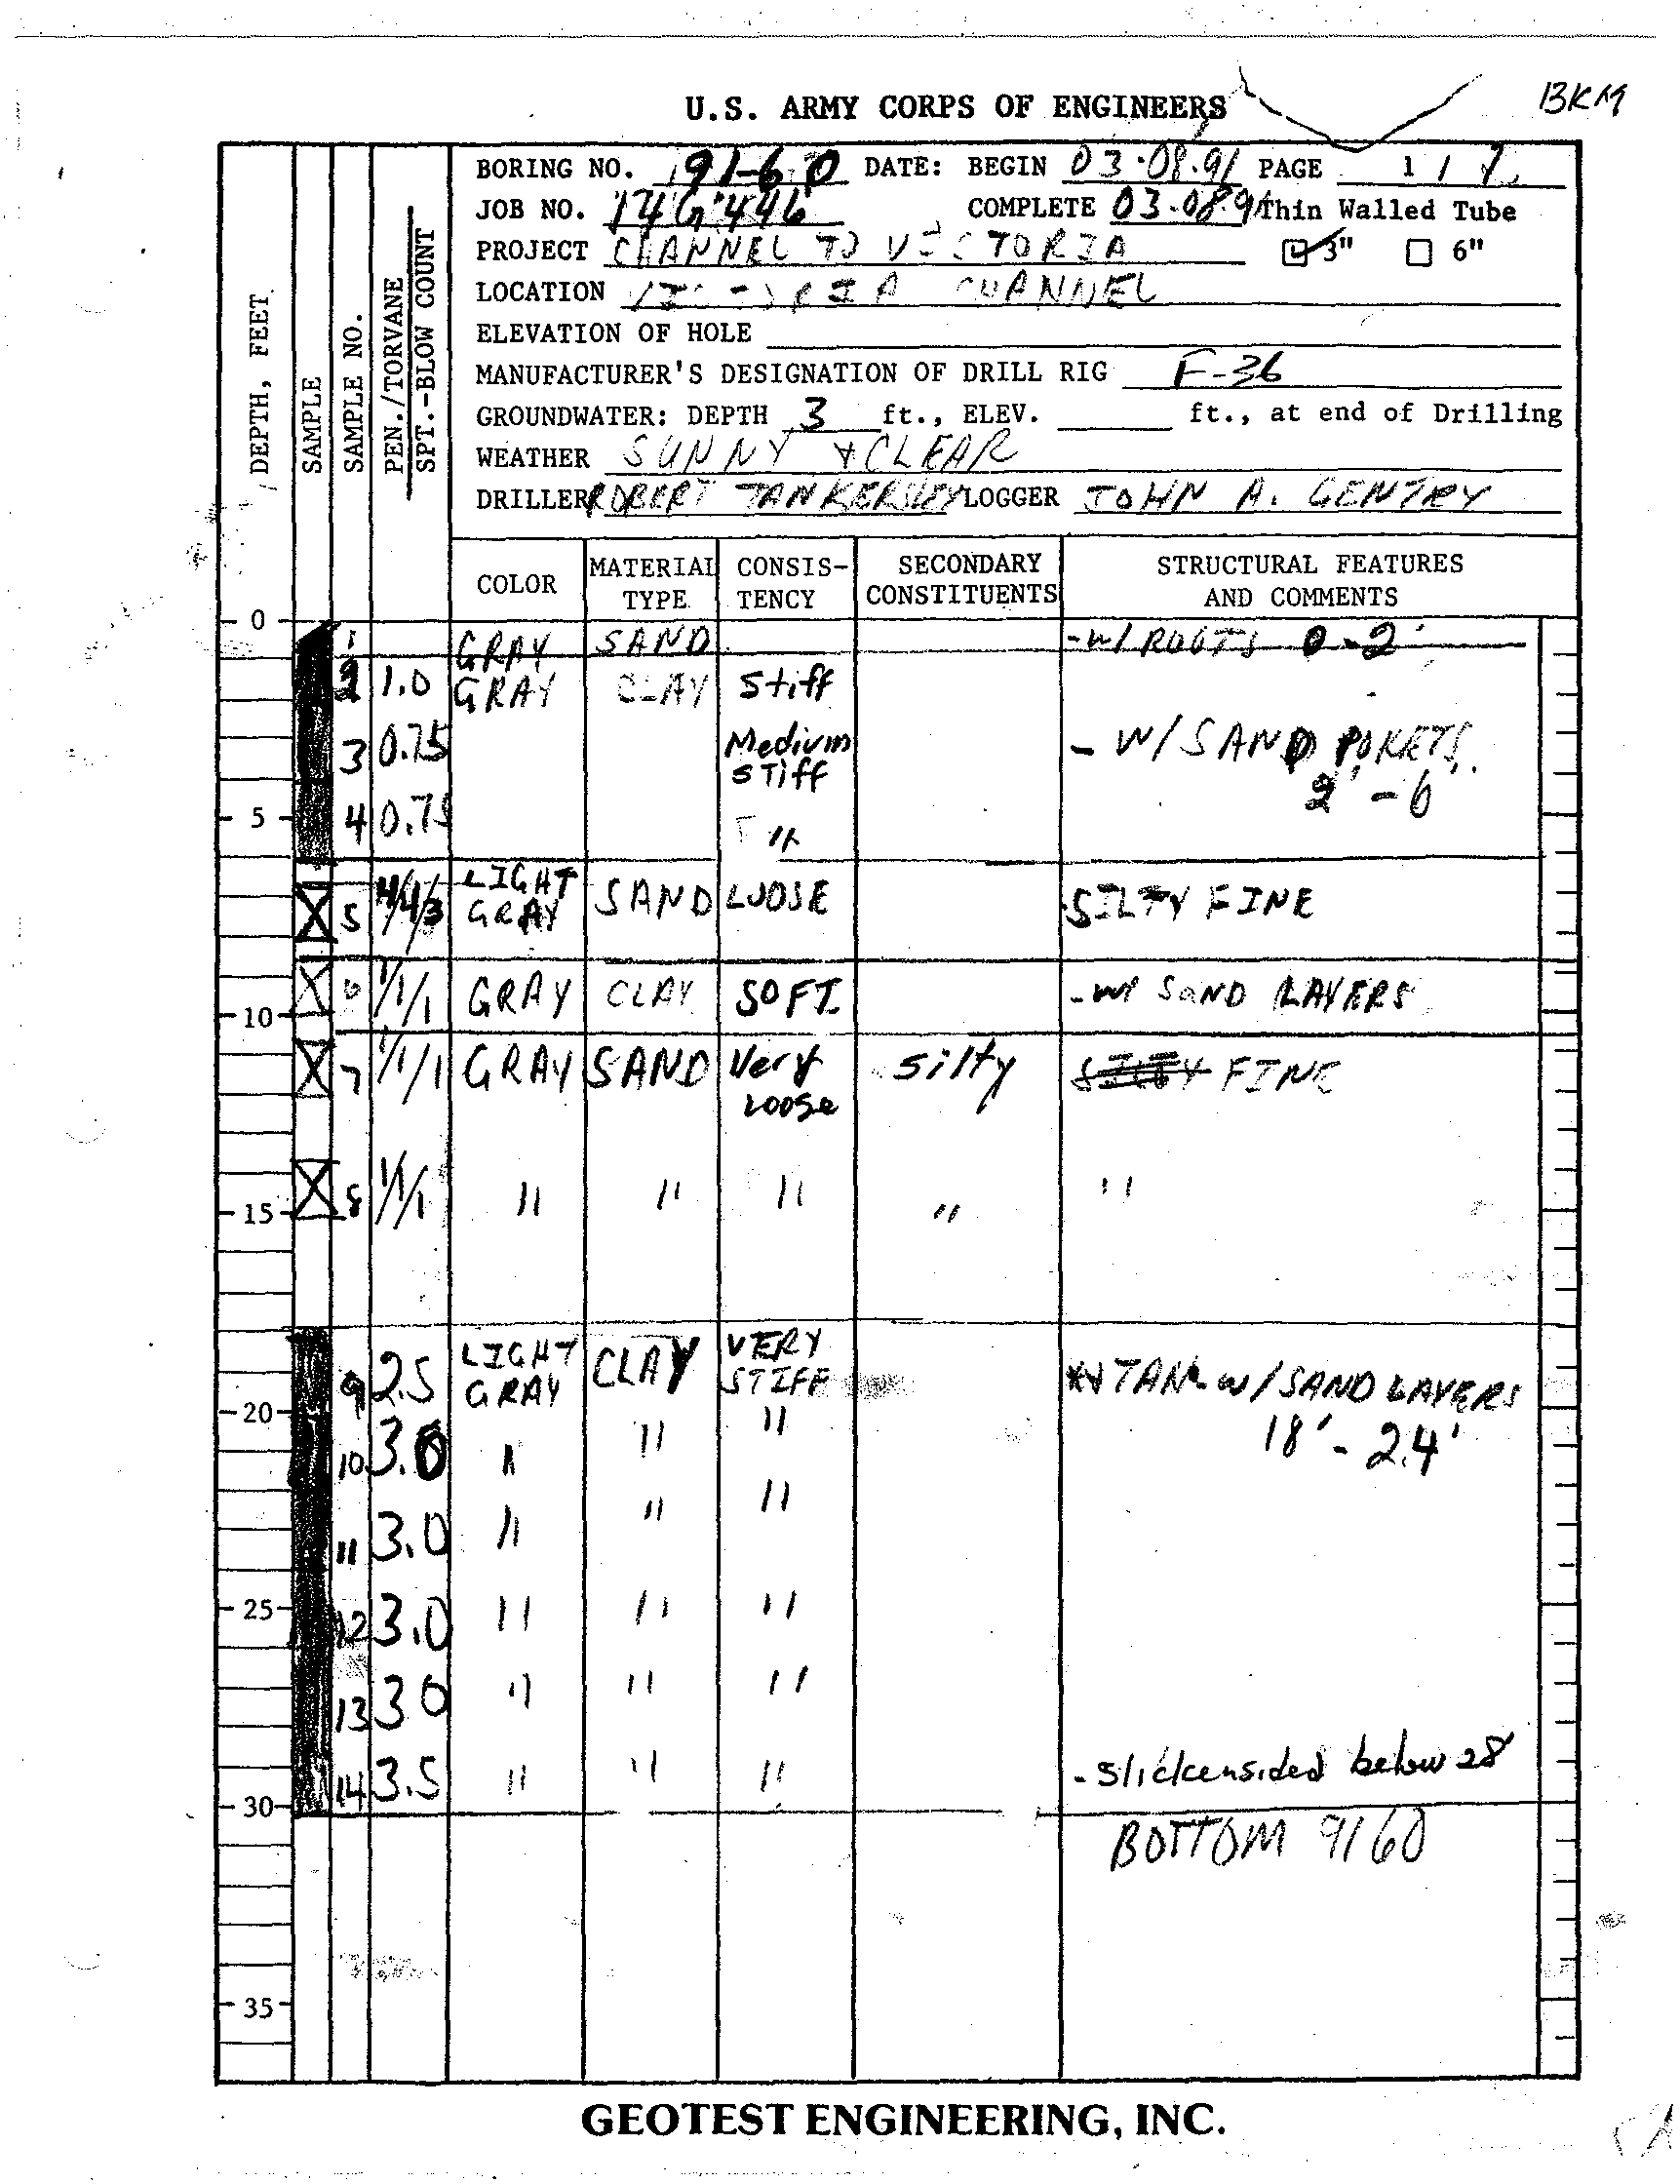 BKM
U.S. ARMY CORPS OF ENGINEERS
BORING NO. 91-60 DATE: BEGIN 03-08-91 PAGE 1 /
JOB NO. 14G446 COMPLETE 03-08-91 Thin Walled Tube
PROJECT CHANNEL TO VICTORIA 3" 6"
LOCATION VICTORIA CHANNEL
ELEVATION OF HOLE
MANUFACTURER'S DESIGNATION OF DRILL RIG F-36
GROUNDWATER: DEPTH 3 ft., ELEV. ft., at end of Drilling
WEATHER SUNNY & CLEAR
DRILLER ROBERT TANKERSLEY LOGGER JOHN A. GENTRY
DEPTH, FEET
SAMPLE
SAMPLE NO.
PEN./TORVANE
SPT.-BLOW COUNT
COLOR MATERIAL TYPE CONSIS-TENCY SECONDARY CONSTITUENTS STRUCTURAL FEATURES AND COMMENTS
0
1 GRAY SAND -W/ ROOTS 0-2'
2 1.0 GRAY CLAY Stiff
3 0.75 Medium STiff - W/ SAND POKETS
2' - 6'
5 4 0.75 "
5 4/4/3 LIGHT GRAY SAND LOOSE SILTY FINE
10 6 1/1/1 GRAY CLAY SOFT -W/ SAND LAYERS
7 1/1/1 GRAY SAND Very Loose silty SILTY FINE
15 8 1/1/1 " " " " "
9 2.5 LIGHT GRAY CLAY VERY STIFF TAN W/SAND LAYERS
20 18' - 24'
10 3.0 " " "
11 3.0 " " "
25 12 3.0 " " "
13 3 0 " " "
14 3.5 " " " - slickensided below 28'
30
BOTTOM 9160
35
GEOTEST ENGINEERING, INC.